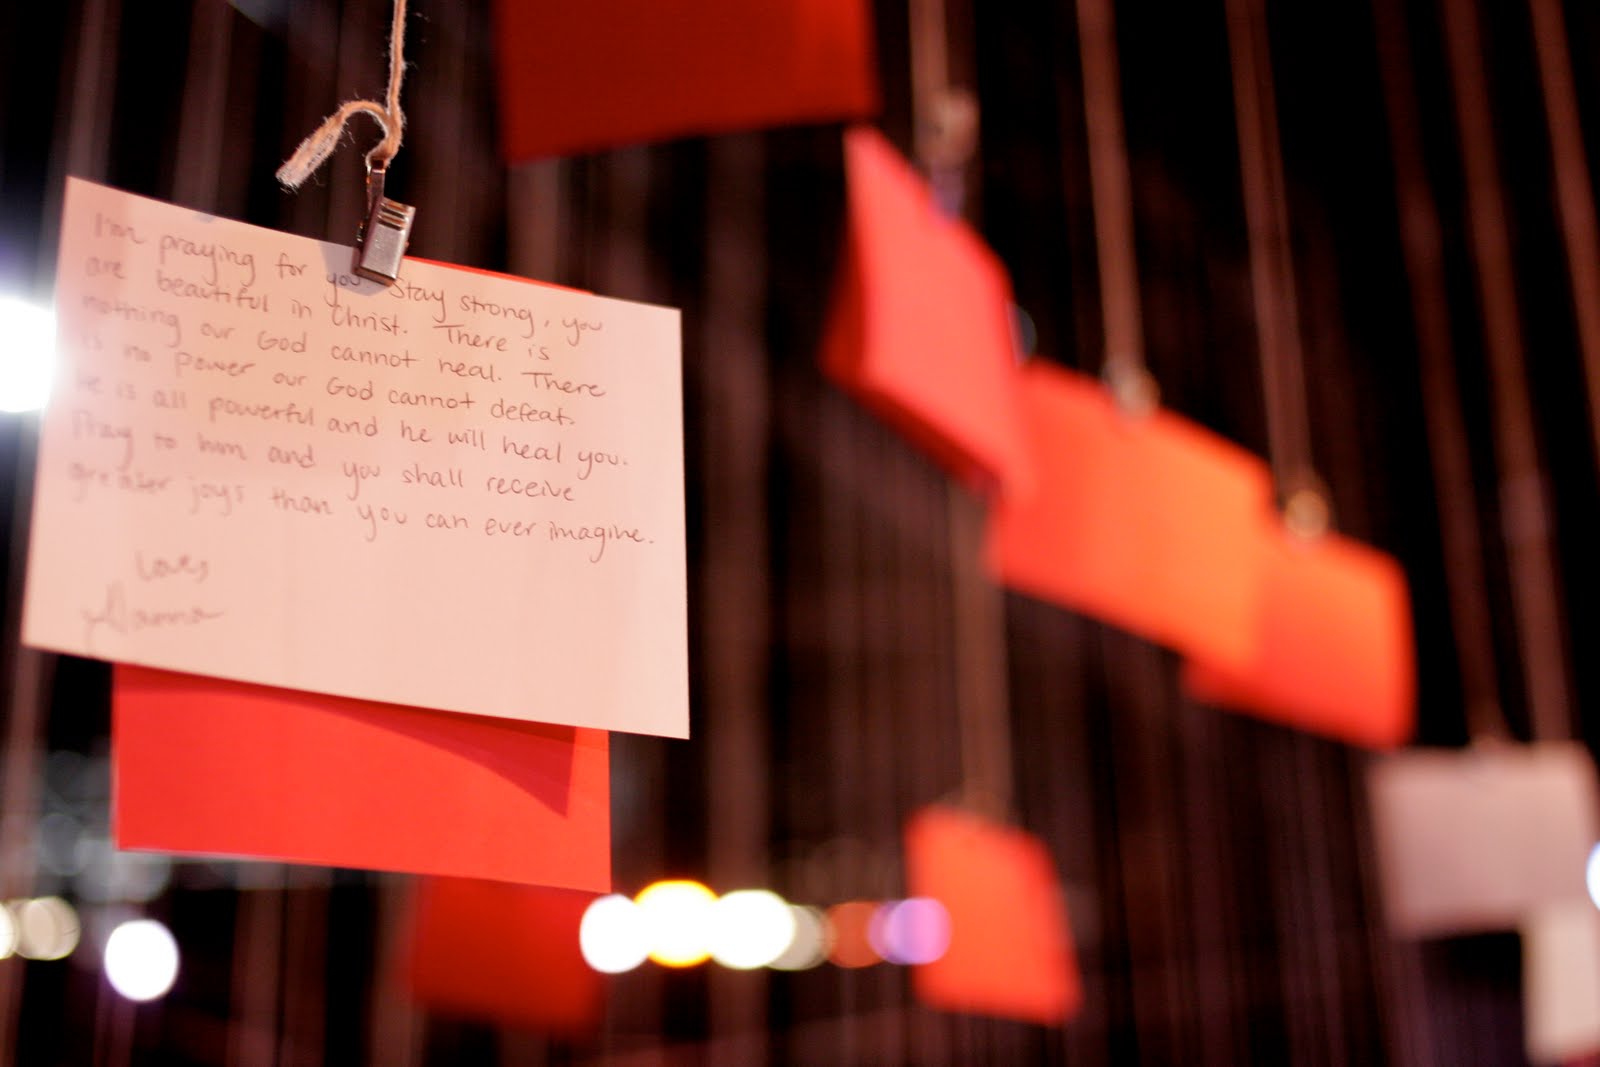 I'm praying for you. Stay strong, you
are beautiful in Christ. There is
nothing our God cannot heal. There
is no power our God cannot defeat.
He is all powerful and he will heal you.
Pray to him and you shall receive
greater joys than you can ever imagine.
Love,